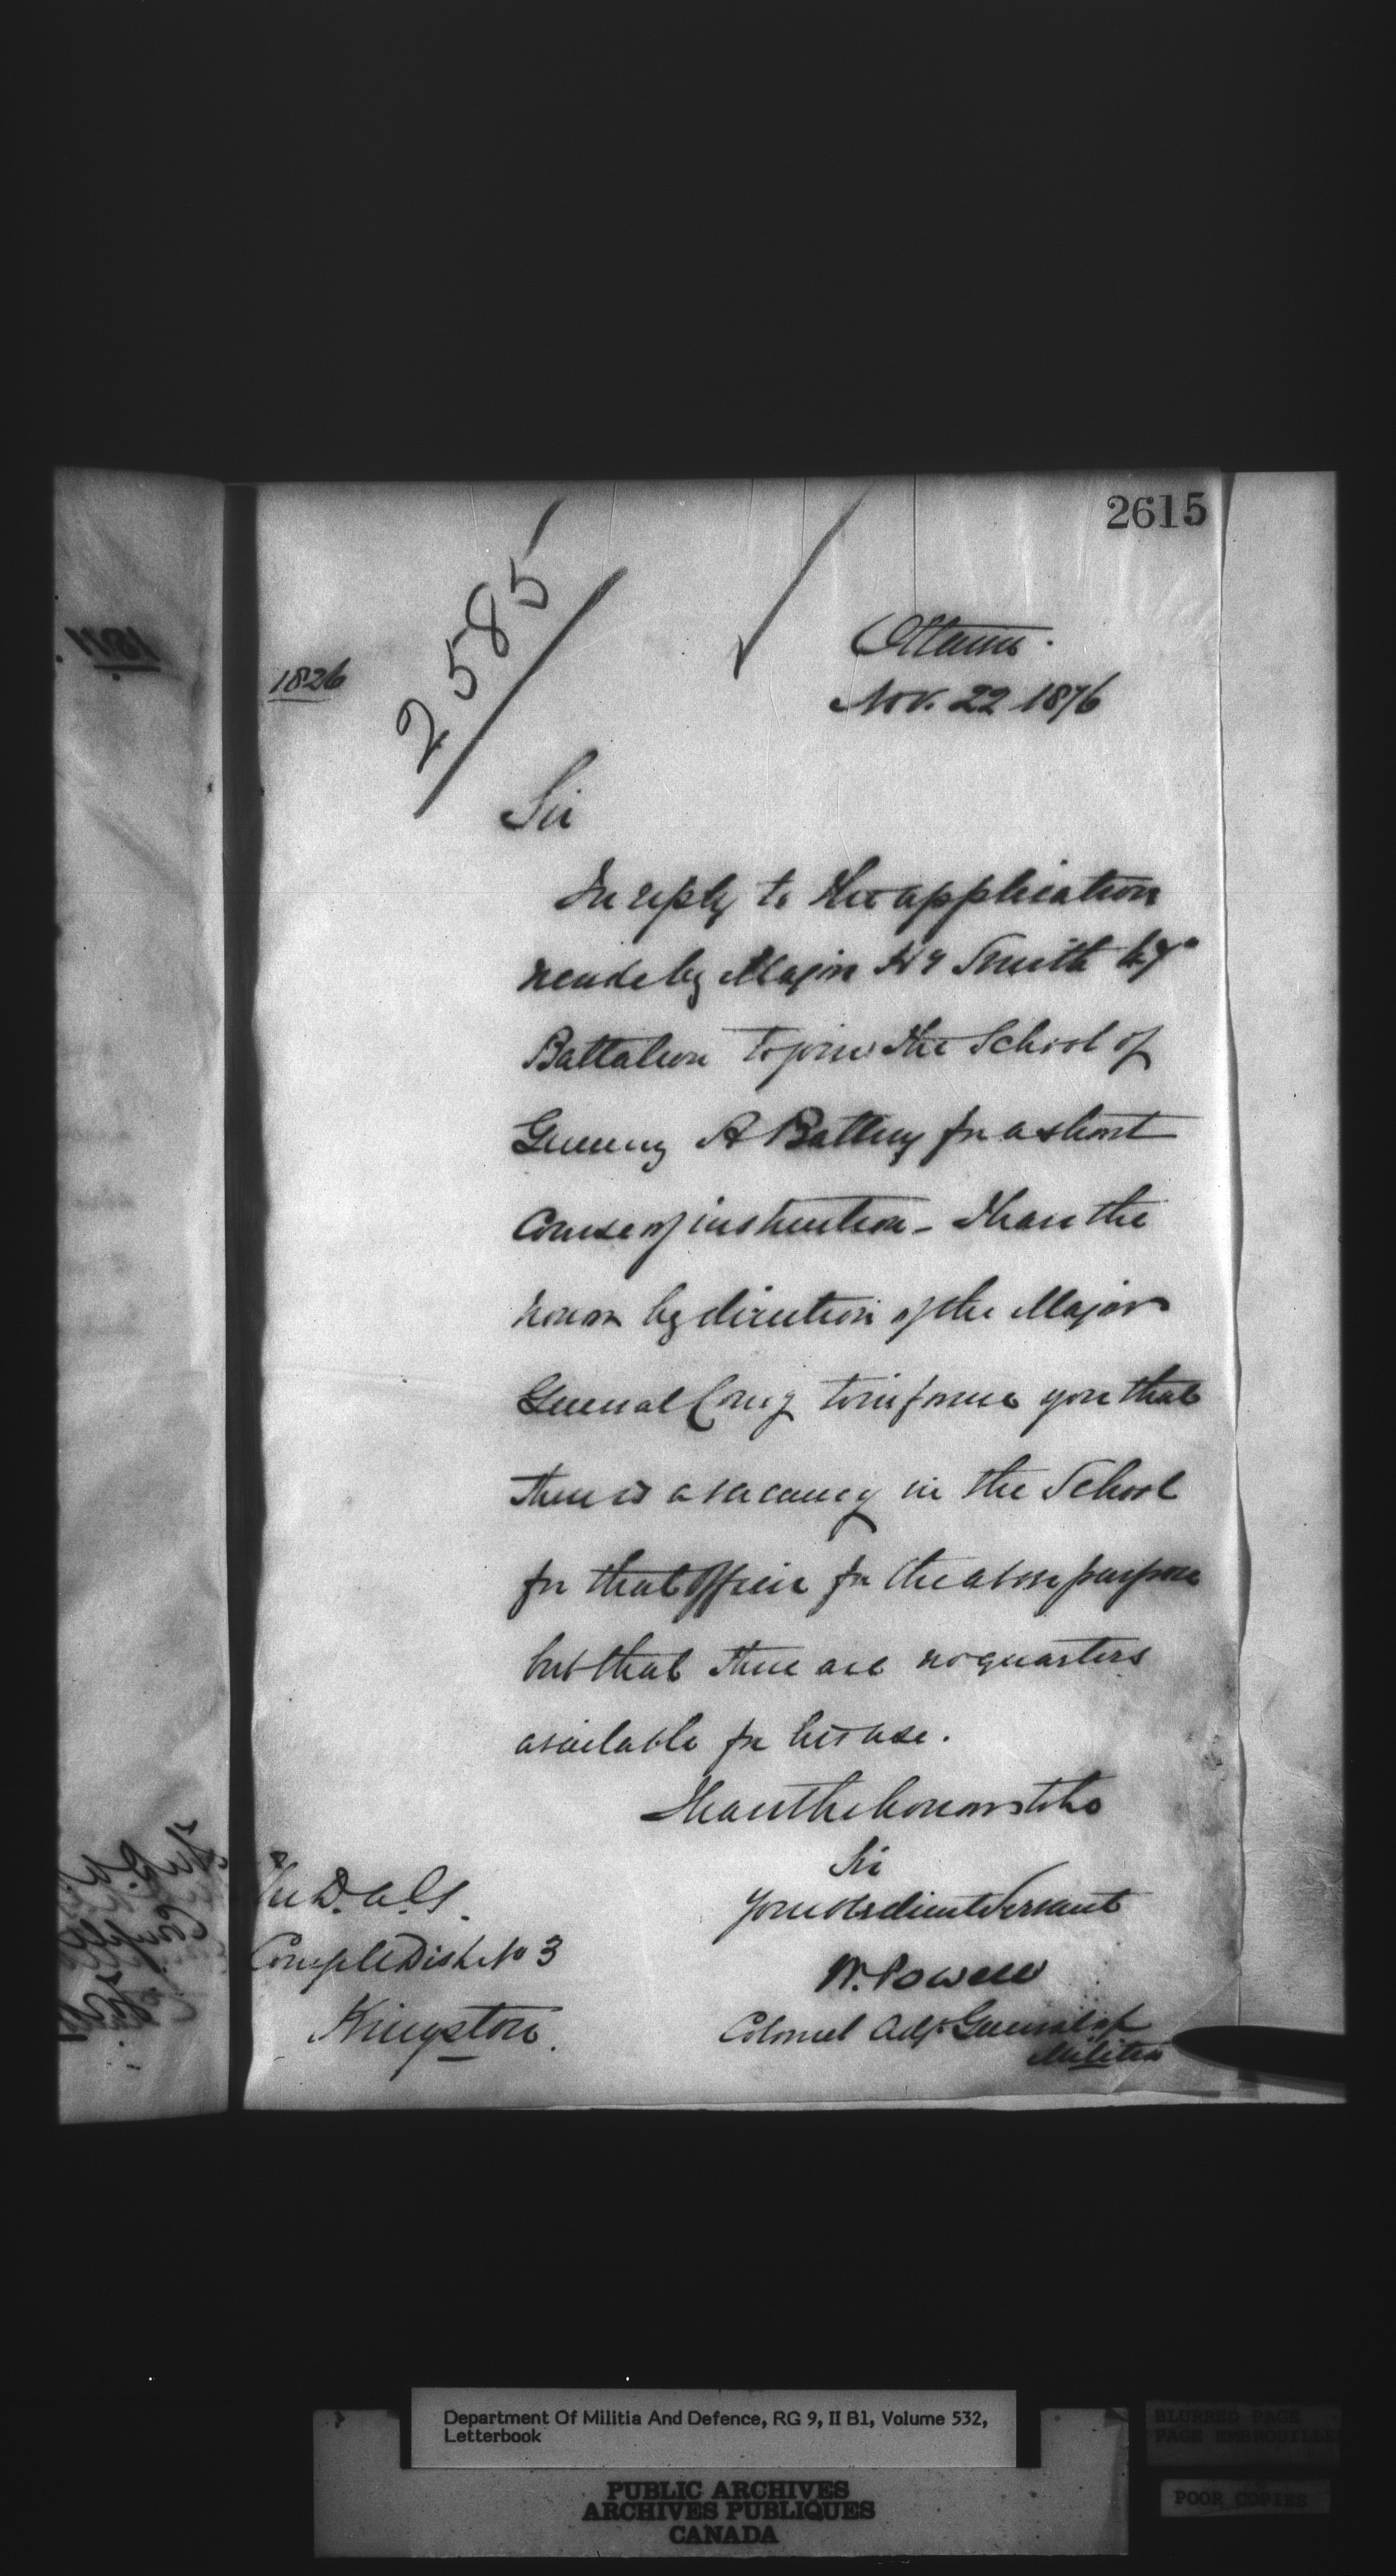 2615
2585
1826
Ottawa.
Nov. 22 1876
Sir
In reply to the application
made by Major Hy Smith 47th
Battalion to join the School of
Gunnery A Battery for a short
Course of instruction - I have the
honor by direction of the Major
General Comg to inform you that
there is a vacancy in the School
for that Officer for the above purpose
but that there are no quarters
available for his use.
I have the honor to be
Sir
Your obedient Servant
W. Powell
Colonel Adjt General of
Militia
The D.A.G.
Comg Mil Dist No 3
Kingston.
Department Of Militia And Defence, RG 9, II B1, Volume 532,
Letterbook
PUBLIC ARCHIVES
ARCHIVES PUBLIQUES
CANADA
BLURRED PAGE
PAGE EMBROUILLEE
POOR COPIES